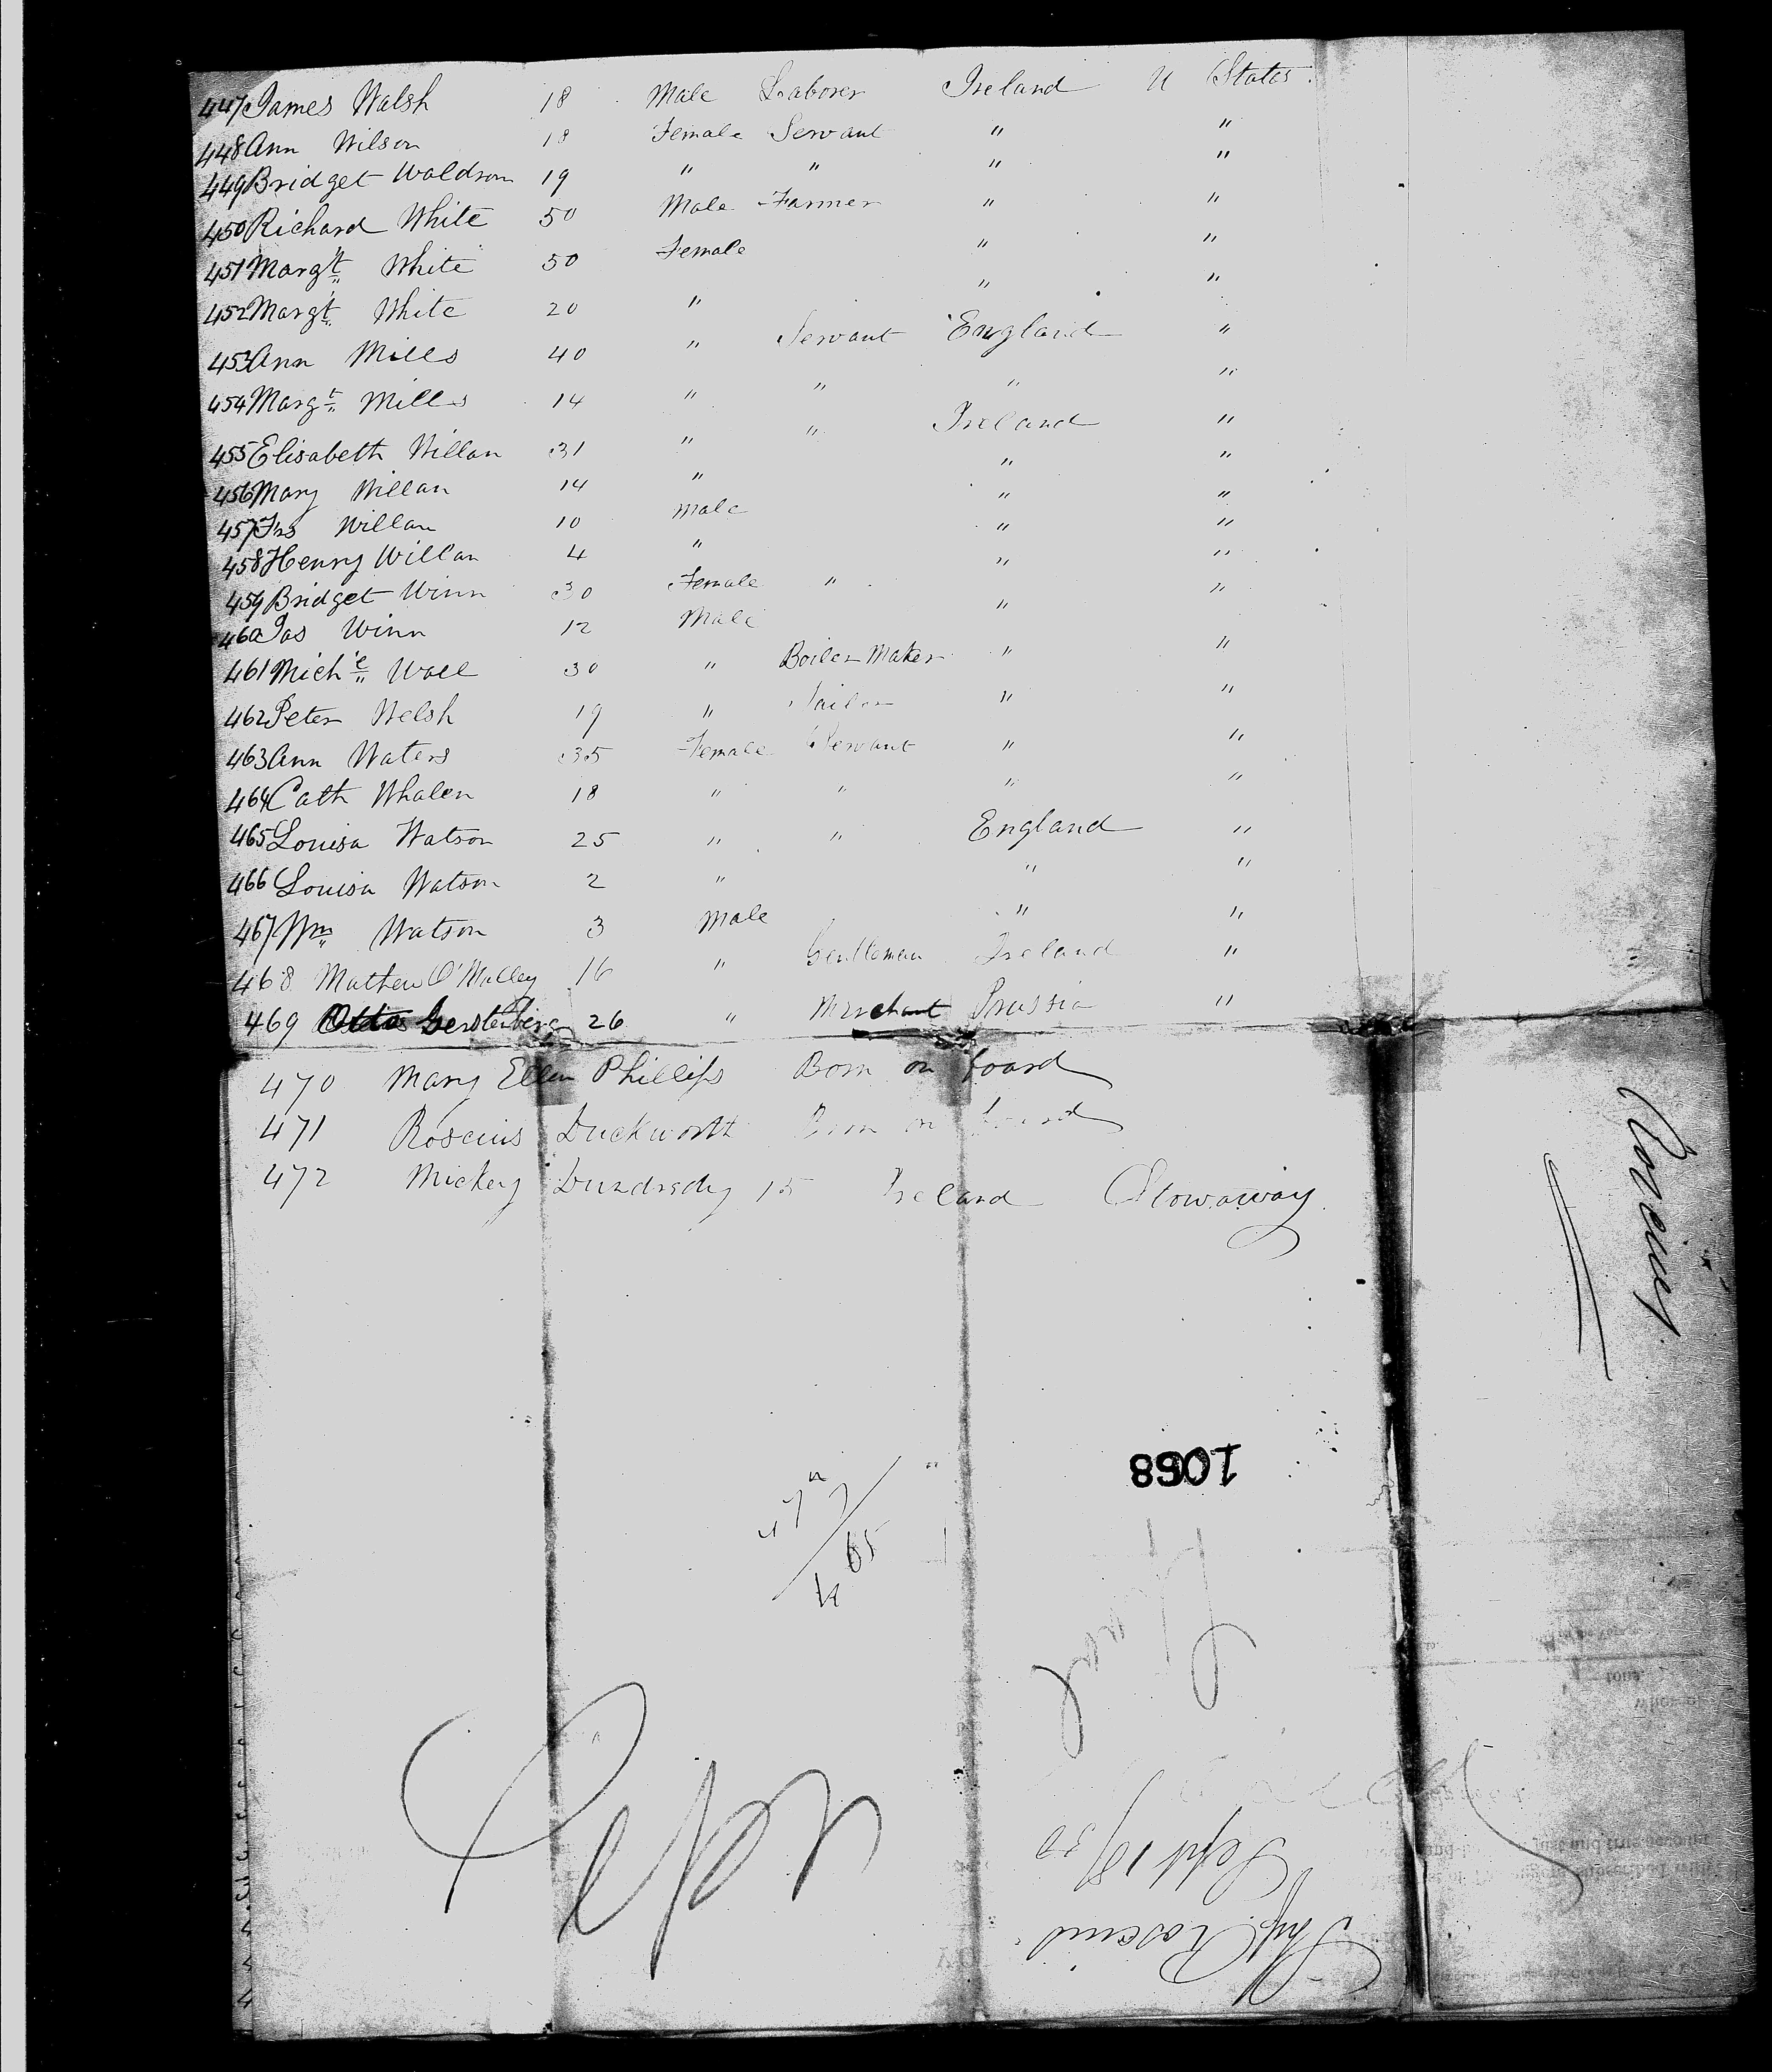 447 James Walsh 18 Male Laborer Ireland U States.
448 Ann Wilson 18 Female Servant " "
449 Bridget Waldron 19 " " " "
450 Richard White 50 Male Farmer " "
451 Margt White 50 Female " "
452 Margt White 20 " " "
453 Ann Mills 40 " Servant England "
454 Margt Mills 14 " " " "
455 Elisabeth Willan 31 " " Ireland "
456 Mary Willan 14 " " "
457 Frs Willan 10 Male " "
458 Henry Willan 4 " " "
459 Bridget Winn 30 Female " " "
460 Jas Winn 12 Male " "
461 Michl Wall 30 " Boiler Maker " "
462 Peter Welsh 19 " Tailor " "
463 Ann Waters 35 Female Servant " "
464 Cath Whalen 18 " " " "
465 Louisa Watson 25 " " England "
466 Louisa Watson 2 " " "
467 Wm Watson 3 Male " "
468 Mathew O'Malley 16 " Gentleman Ireland "
469 Gerstenberg 26 " Merchant Prussia "
470 Mary Ellen Phillips Born on board
471 Roscius Duckworth Born on board
472 Mickey 15 Ireland Stowaway
Roscius
1068
465
Ship Roscius
Sept 18/50